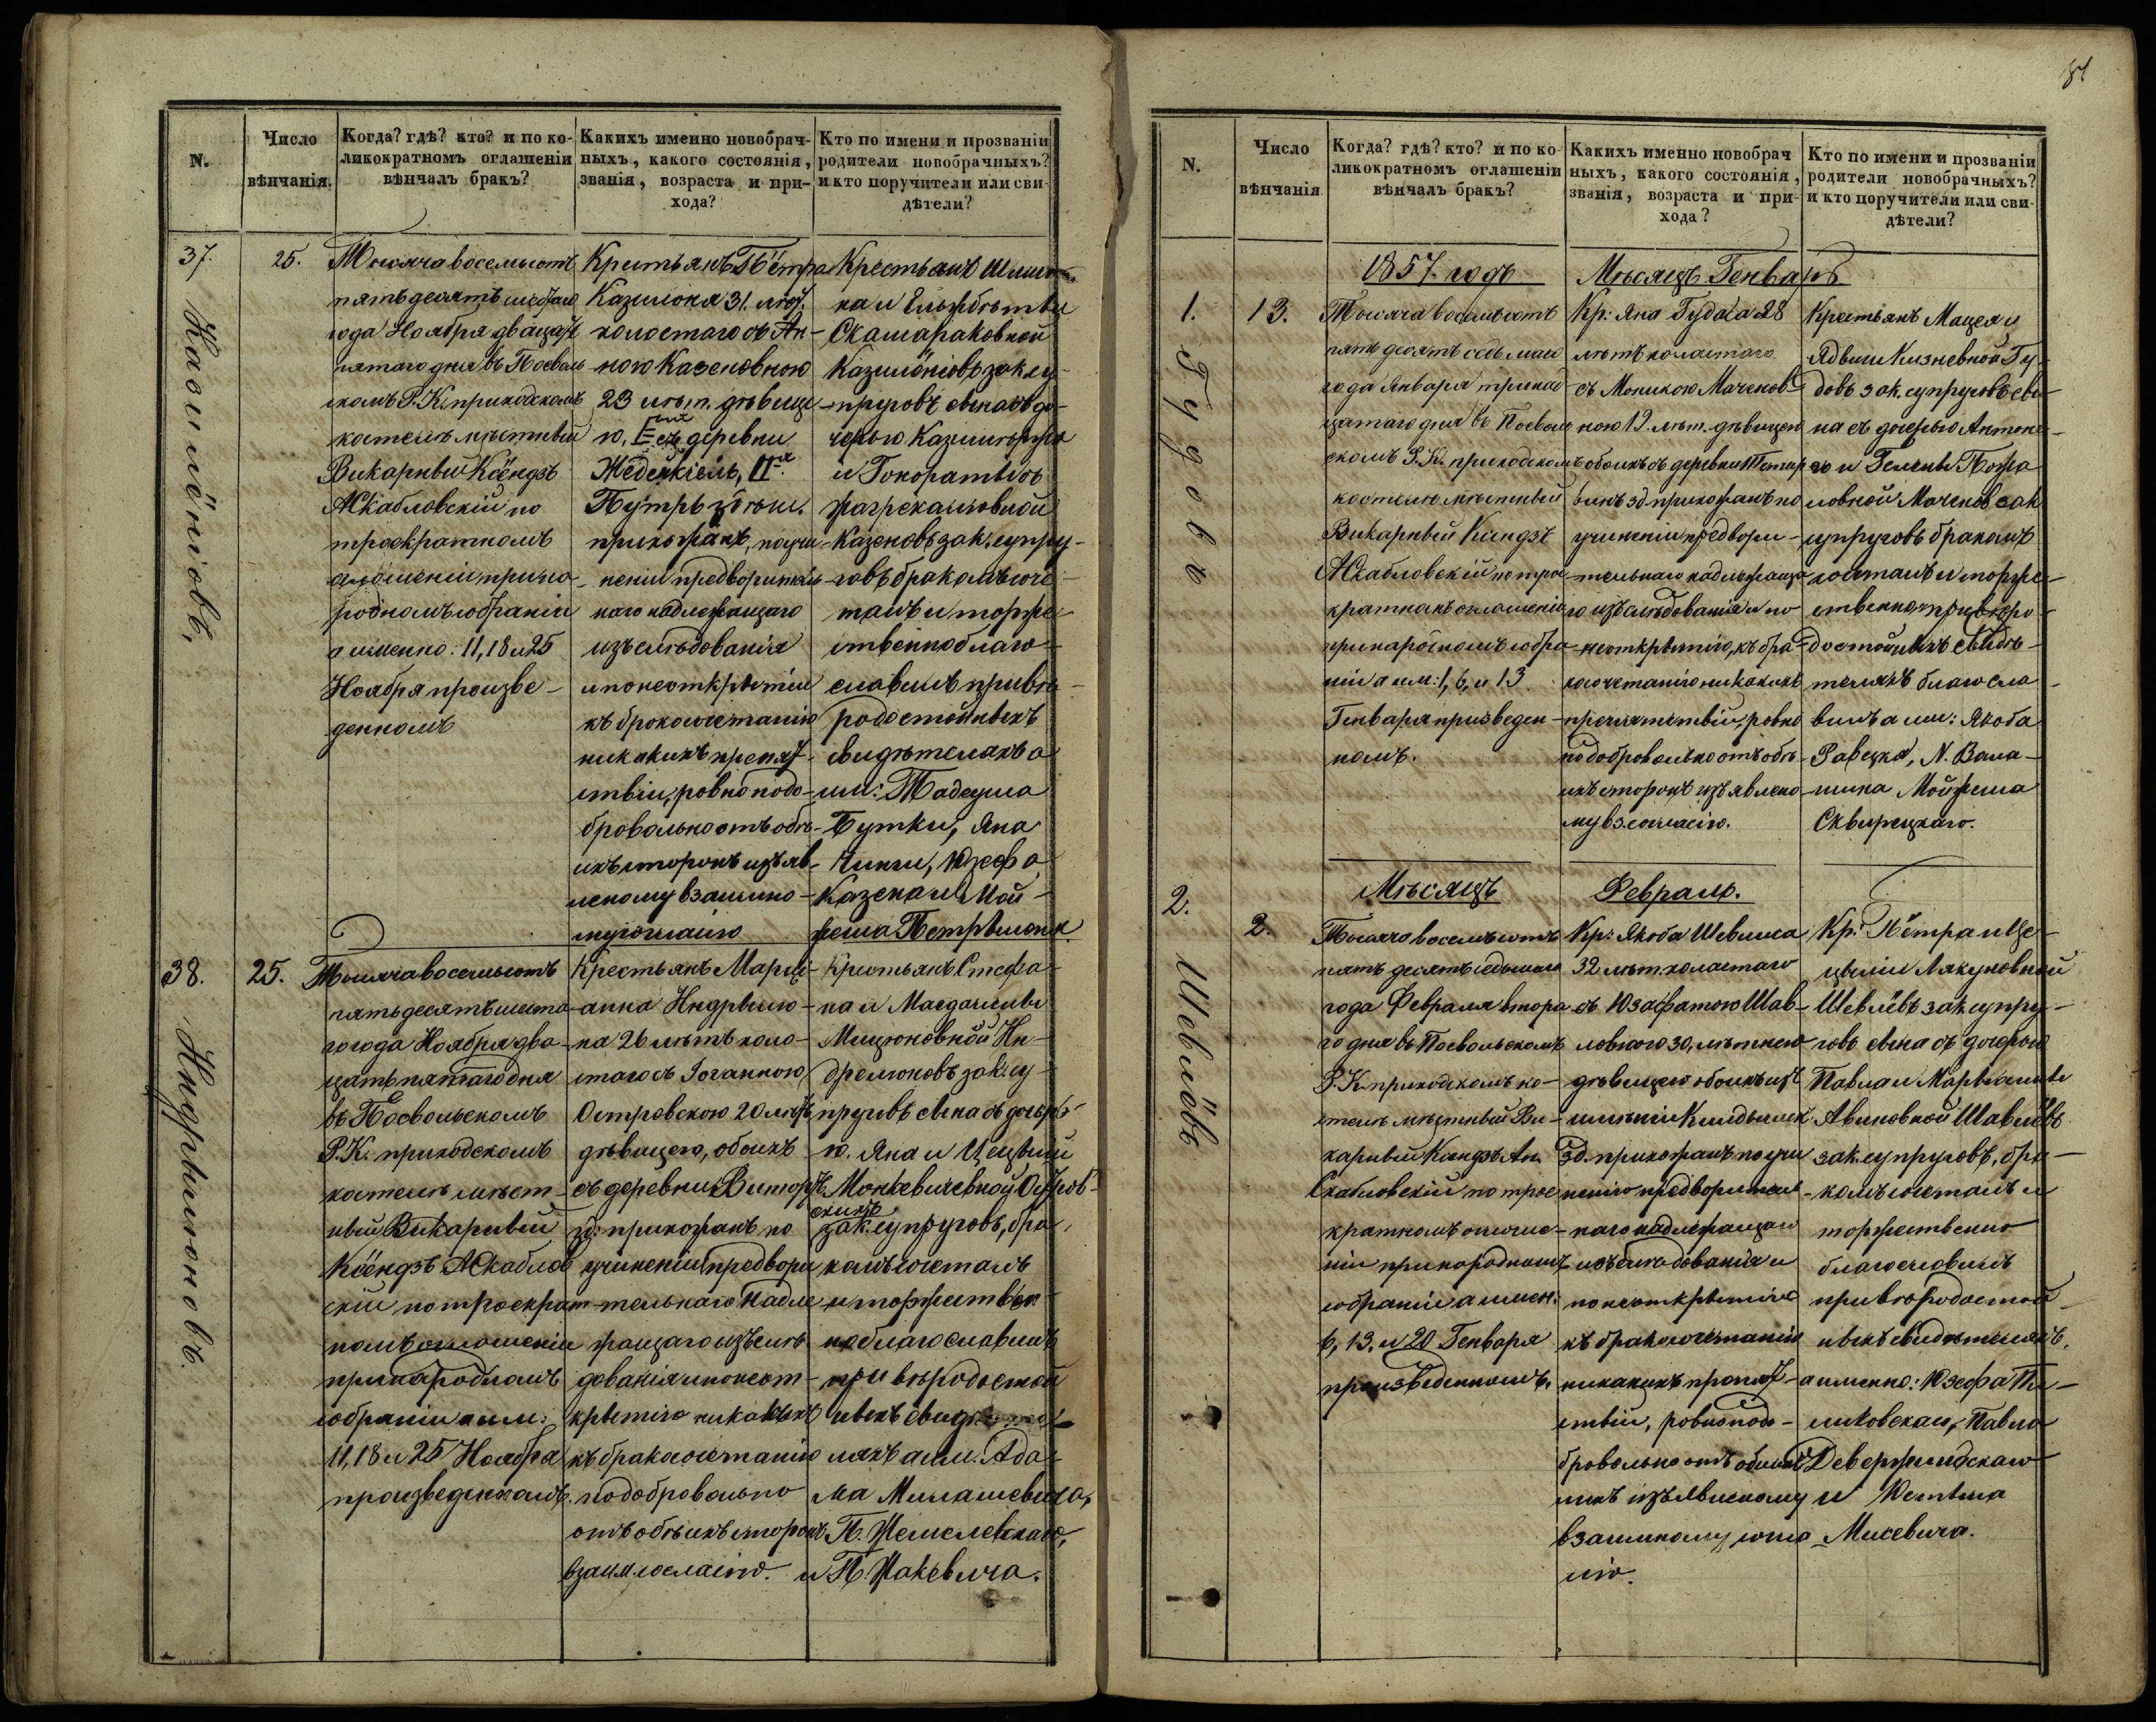 N.
Число
вѣнчанія.
Когда? гдѣ? кто? и по ко-
ликократномъ оглашеніи
вѣнчалъ бракъ?
Какихъ именно новобрач-
ныхъ, какого состоянія,
званія, возраста и при-
хода?
Кто по имени и прозваніи
родители новобрачныхъ?
и кто поручители или сви-
дѣтели?
37.
25.
Тысяча восемьсотъ
пятьдесятъ шестаго
года Ноября двацать
пятаго дня въ Посволь
скомъ Р. К. приходскомъ
костелѣ мѣстный
Викарный Ксёндзъ
А Скабловскій по
троекратномъ
оглашеніи при на
родномъ собраніи
а именно: 11, 18 и 25
Ноября произве-
денномъ
Крестьянъ Пётра
Казилёна 31. лѣт.
холостаго съ Ан-
ною Казеновною
23 лѣт. дѣвице
ю, Iый съ деревни
IIя
прихожанъ, по учи
неніи предворитель
наго надлежащаго
изъслѣдованія
и по неоткрытіи
къ бракосочетанію
никакихъ препят
ствіи, ровно подо-
бровольно отъ обѣ-
ихъ сторонъ изъяв
леному взаимно-
му согласію
Крестьянъ
на и Ельжбѣты
Скамараковной
Казилёніовъ зак. су-
пруговъ сына съ до-
черью Казимѣра
и Гонораты
Казеновъ зак. супру-
говъ бракомъ соче-
талъ и торже-
ственно благо-
славилъ при вѣ-
родостойныхъ
свидѣтеляхъ а
им: Тадеуша
Бутки, Яна
Чинги, Юзефа
Казена и Мой-
жеша Петрѣлона.
Казилёніовъ,
38.
25.
Тысяча восемьсотъ
пятьдесятъ шеста
го года Ноября два-
цать пятаго дня
въ Посвольскомъ
Р. К. приходскомъ
костелѣ мѣст-
ный Викарный
Ксёндзъ А Скаблов
скій по троекрат
номъ оглашеніи
при народномъ
собраніи а им:
11, 18 и 25 Ноября
произведенномъ.
Крестьянъ Марці-
анна Индрѣлю-
на 26 лѣтъ холо-
стаго съ Іоганною
Островскою 20 лѣтъ
дѣвицею, обоихъ
съ деревни
зд: прихожанъ по
учиненіи предвори
тельнаго надле-
жащаго изъслѣ
дованія и по неот-
крытію никакихъ
къ бракосочетанію
по добровольно
отъ обѣихъ сторонъ
взаим. согласію.
Крестьянъ Стефа-
на и Магдалены
Мицюновной Ин-
дрелюновъ зак: су-
пруговъ сына съ дочерь-
ю. Яна и Цецыліи
Монкевичевной Остров
скихъ
зак. супруговъ, бра-
комъ сочеталъ
и торжествен
но благославилъ
при вѣродостой
ныхъ свидѣте-
ляхъ а им. Ада-
ма Милашевича,
П. Жемелевскаго,
и П. Жакевича.
Индрѣлюновъ.
81
N.
Число
вѣнчанія.
Когда? гдѣ? кто? и по ко-
ликократномъ оглашеніи
вѣнчалъ бракъ?
Какихъ именно новобрач
ныхъ, какого состоянія,
званія, возраста и при-
хода?
Кто по имени и прозваніи
родители новобрачныхъ?
и кто поручители или сви-
дѣтели?
1857. годъ Мѣсяцъ Генварь
1.
13.
Тысяча восемьсотъ
пятьдесятъ седьмаго
года Января тринад
цатаго дня въ Посволь
скомъ Р. К. приходскомъ
костелѣ мѣстный
Викарный Ксендзъ
А Скабловскій по трое
кратномъ оглашеніи
при народномъ собра
ніи а им: 1, 6, и 13
Генваря произведен-
номъ.
Кр: Яна Гудаса 28
лѣтъ холостаго
съ Моникою Маченов-
ною 19. лѣт. дѣвицею
обоихъ съ деревни
зд. прихожанъ по
учиненіи предвори-
тельнаго надлежаща
го изъслѣдованія и по
неоткрытію, къ бра-
косочетанію никакихъ
препятствіи, ровно
по добровольно отъ обѣ-
ихъ сторонъ изъявлено
му вз. согласію.
Крестьянъ Мацея и
Ядвиги Кизневной Гу-
довъ зак. супруговъ сы-
на съ дочерью Антоне-
го и Гелены
Маченовъ зак
супруговъ бракомъ
сочеталъ и торже-
ственно при вѣро-
достойныхъ свидѣ-
теляхъ благосла-
вилъ а им: Якоба
Равецка, N. Вала-
шина Мойжеша
Сквирецкаго.
Гудовъ
Мѣсяцъ Февраль.
2.
2.
Тысяча восемьсотъ
пятьдесятъ седьмаго
года Февраля втора
го дня въ Посвольскомъ
Р. К. приходскомъ ко-
стелѣ мѣстный Ви-
карный Ксендзъ Ан.
Скабловскій по трое
кратномъ оглаше-
ніи при народномъ
собраніи а имен:
6, 13, и 20 Генваря
произведенномъ.
Кр: Якоба Шевиліа
32 лѣт. холостаго
съ Юзафатою Шав-
ловною 30, лѣтнею
дѣвицею обоихъ изъ
имѣнія
Зд. прихожанъ по учи
ненію предворитель
наго надлежащаго
изъслѣдованія и
по неоткрытію
къ бракосочетанію
никакихъ препят-
ствіи, ровно подо-
бровольно отъ
ихъ изъявленому
взаимному согла
сію.
Кр: Пётра и Це-
циліи Лякуновной
Шевлёвъ зак супру-
говъ сына съ дочерью
Павла и Марьянны
Авиновной Шавлёвъ
зак. супруговъ, бра-
комъ сочеталъ и
торжественно
благословилъ
при вѣродостой
ныхъ свидѣтеляхъ,
а именно: Юзефа
Павла
Девержинскаго
и
Мисевича.
Шевлёвъ